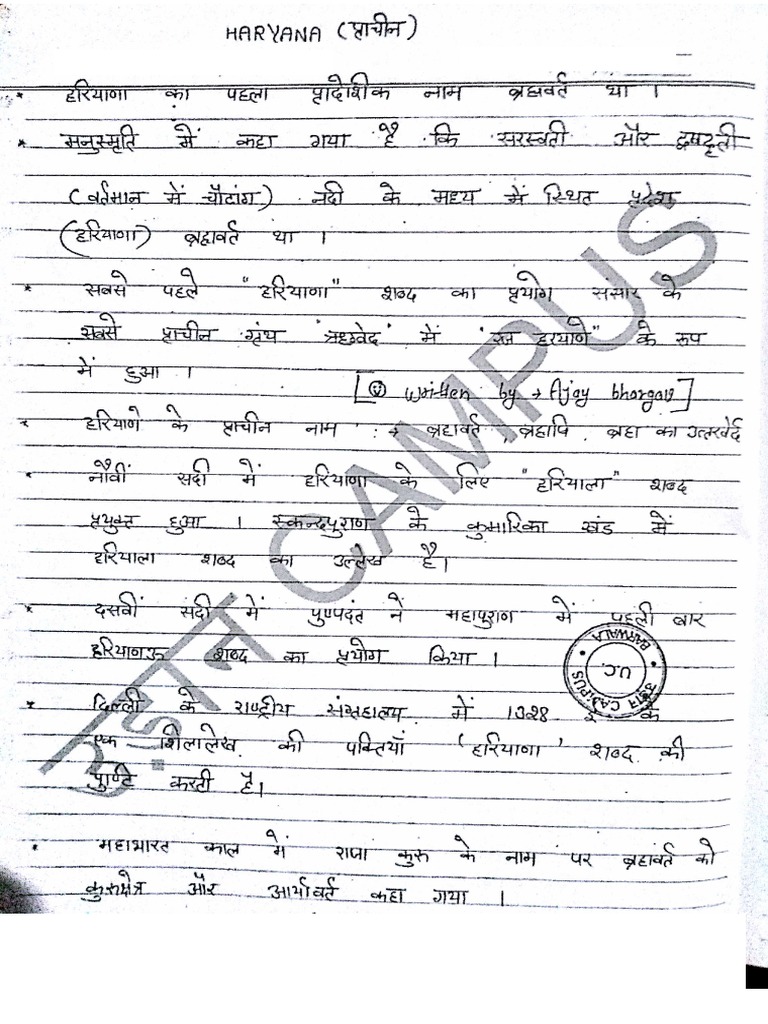 HARYANA (प्राचीन)
* हरियाणा का पहला प्रादेशिक नाम ब्रह्मवर्त था ।
* मनुस्मृति में कहा गया है कि सरस्वती और द्रषद्वती
(वर्तमान में चौटांग) नदी के मध्य में स्थित प्रदेश
(हरियाणा) ब्रह्मवर्त था ।
* सबसे पहले "हरियाणा" शब्द का प्रयोग संसार के
सबसे प्राचीन ग्रंथ 'ऋग्वेद' में 'रज हरयाणे" के रूप
में हुआ ।
[written by → Ajay bhargav]
* हरियाणे के प्राचीन नाम :→ ब्रह्मवर्त, ब्रह्मर्षि, ब्रह्म का उत्तरवेदी
* नौवीं सदी में हरियाणा के लिए "हरियाला" शब्द
प्रयुक्त हुआ । स्कन्दपुराण के कुमारिका खंड में
हरियाला शब्द का उल्लेख है।
* दसवीं सदी में पुष्पदंत ने महापुराण में पहली बार
हरियानऊ शब्द का प्रयोग किया ।
* दिल्ली के राष्ट्रीय संग्रहालय में 1328 ई० के
एक शिलालेख की पंक्तियाँ 'हरियाणा' शब्द की
पुष्टि करती है।
* महाभारत काल में राजा कुरु के नाम पर ब्रह्मवर्त को
कुरुक्षेत्र और आर्यावर्त कहा गया ।
उड़ान CAMPUS
उड़ान CAMPUS BARWALA
U.C.